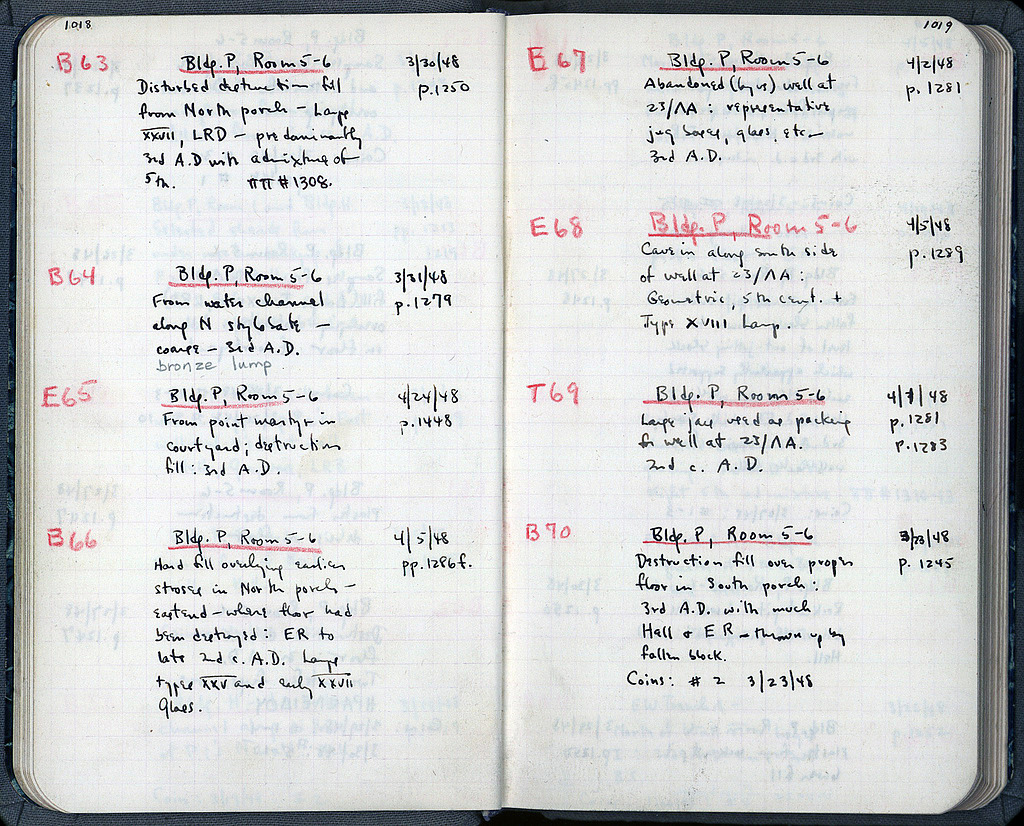 1018
B63 Bldg. P, Room 5-6 3/30/48
Disturbed destruction fill p.1250
from North porch – Lamps
XXVII, LRD – predominantly
3rd A.D with admixture of
5th. ππ #1308.
B64 Bldg. P, Room 5-6 3/31/48
From water channel p.1279
along N stylobate –
coarse – 3rd A.D.
bronze lump
E65 Bldg. P, Room 5-6 4/24/48
From point martyr in p.1448
courtyard; destruction
fill: 3rd A.D.
B66 Bldg. P, Room 5-6 4/5/48
Hard fill overlying earlier pp.1286f.
stroses in North porch –
east end – where floor had
been destroyed: ER to
late 2nd c. A.D. Lamps
types XXV and early XXVII
Glass.
1019
E67 Bldg. P, Room 5-6 4/2/48
Abandoned (by us) well at p. 1281
23/ΛΑ: representative
jug bases, glass, etc –
3rd A.D.
E68 Bldg. P, Room 5-6 4/5/48
Cave in along south side p.1289
of well at 23/ΛΑ:
Geometric, 5th cent. +
Type XVIII Lamp.
T69 Bldg. P, Room 5-6 4/1/48
Large jar used as packing p.1281
for well at 23/ΛΑ. p.1283
2nd c. A.D.
B70 Bldg. P, Room 5-6 3/23/48
Destruction fill over proper p. 1245
floor in South porch:
3rd A.D. with much
Hell & ER – thrown up by
fallen block.
Coins: #2 3/23/48